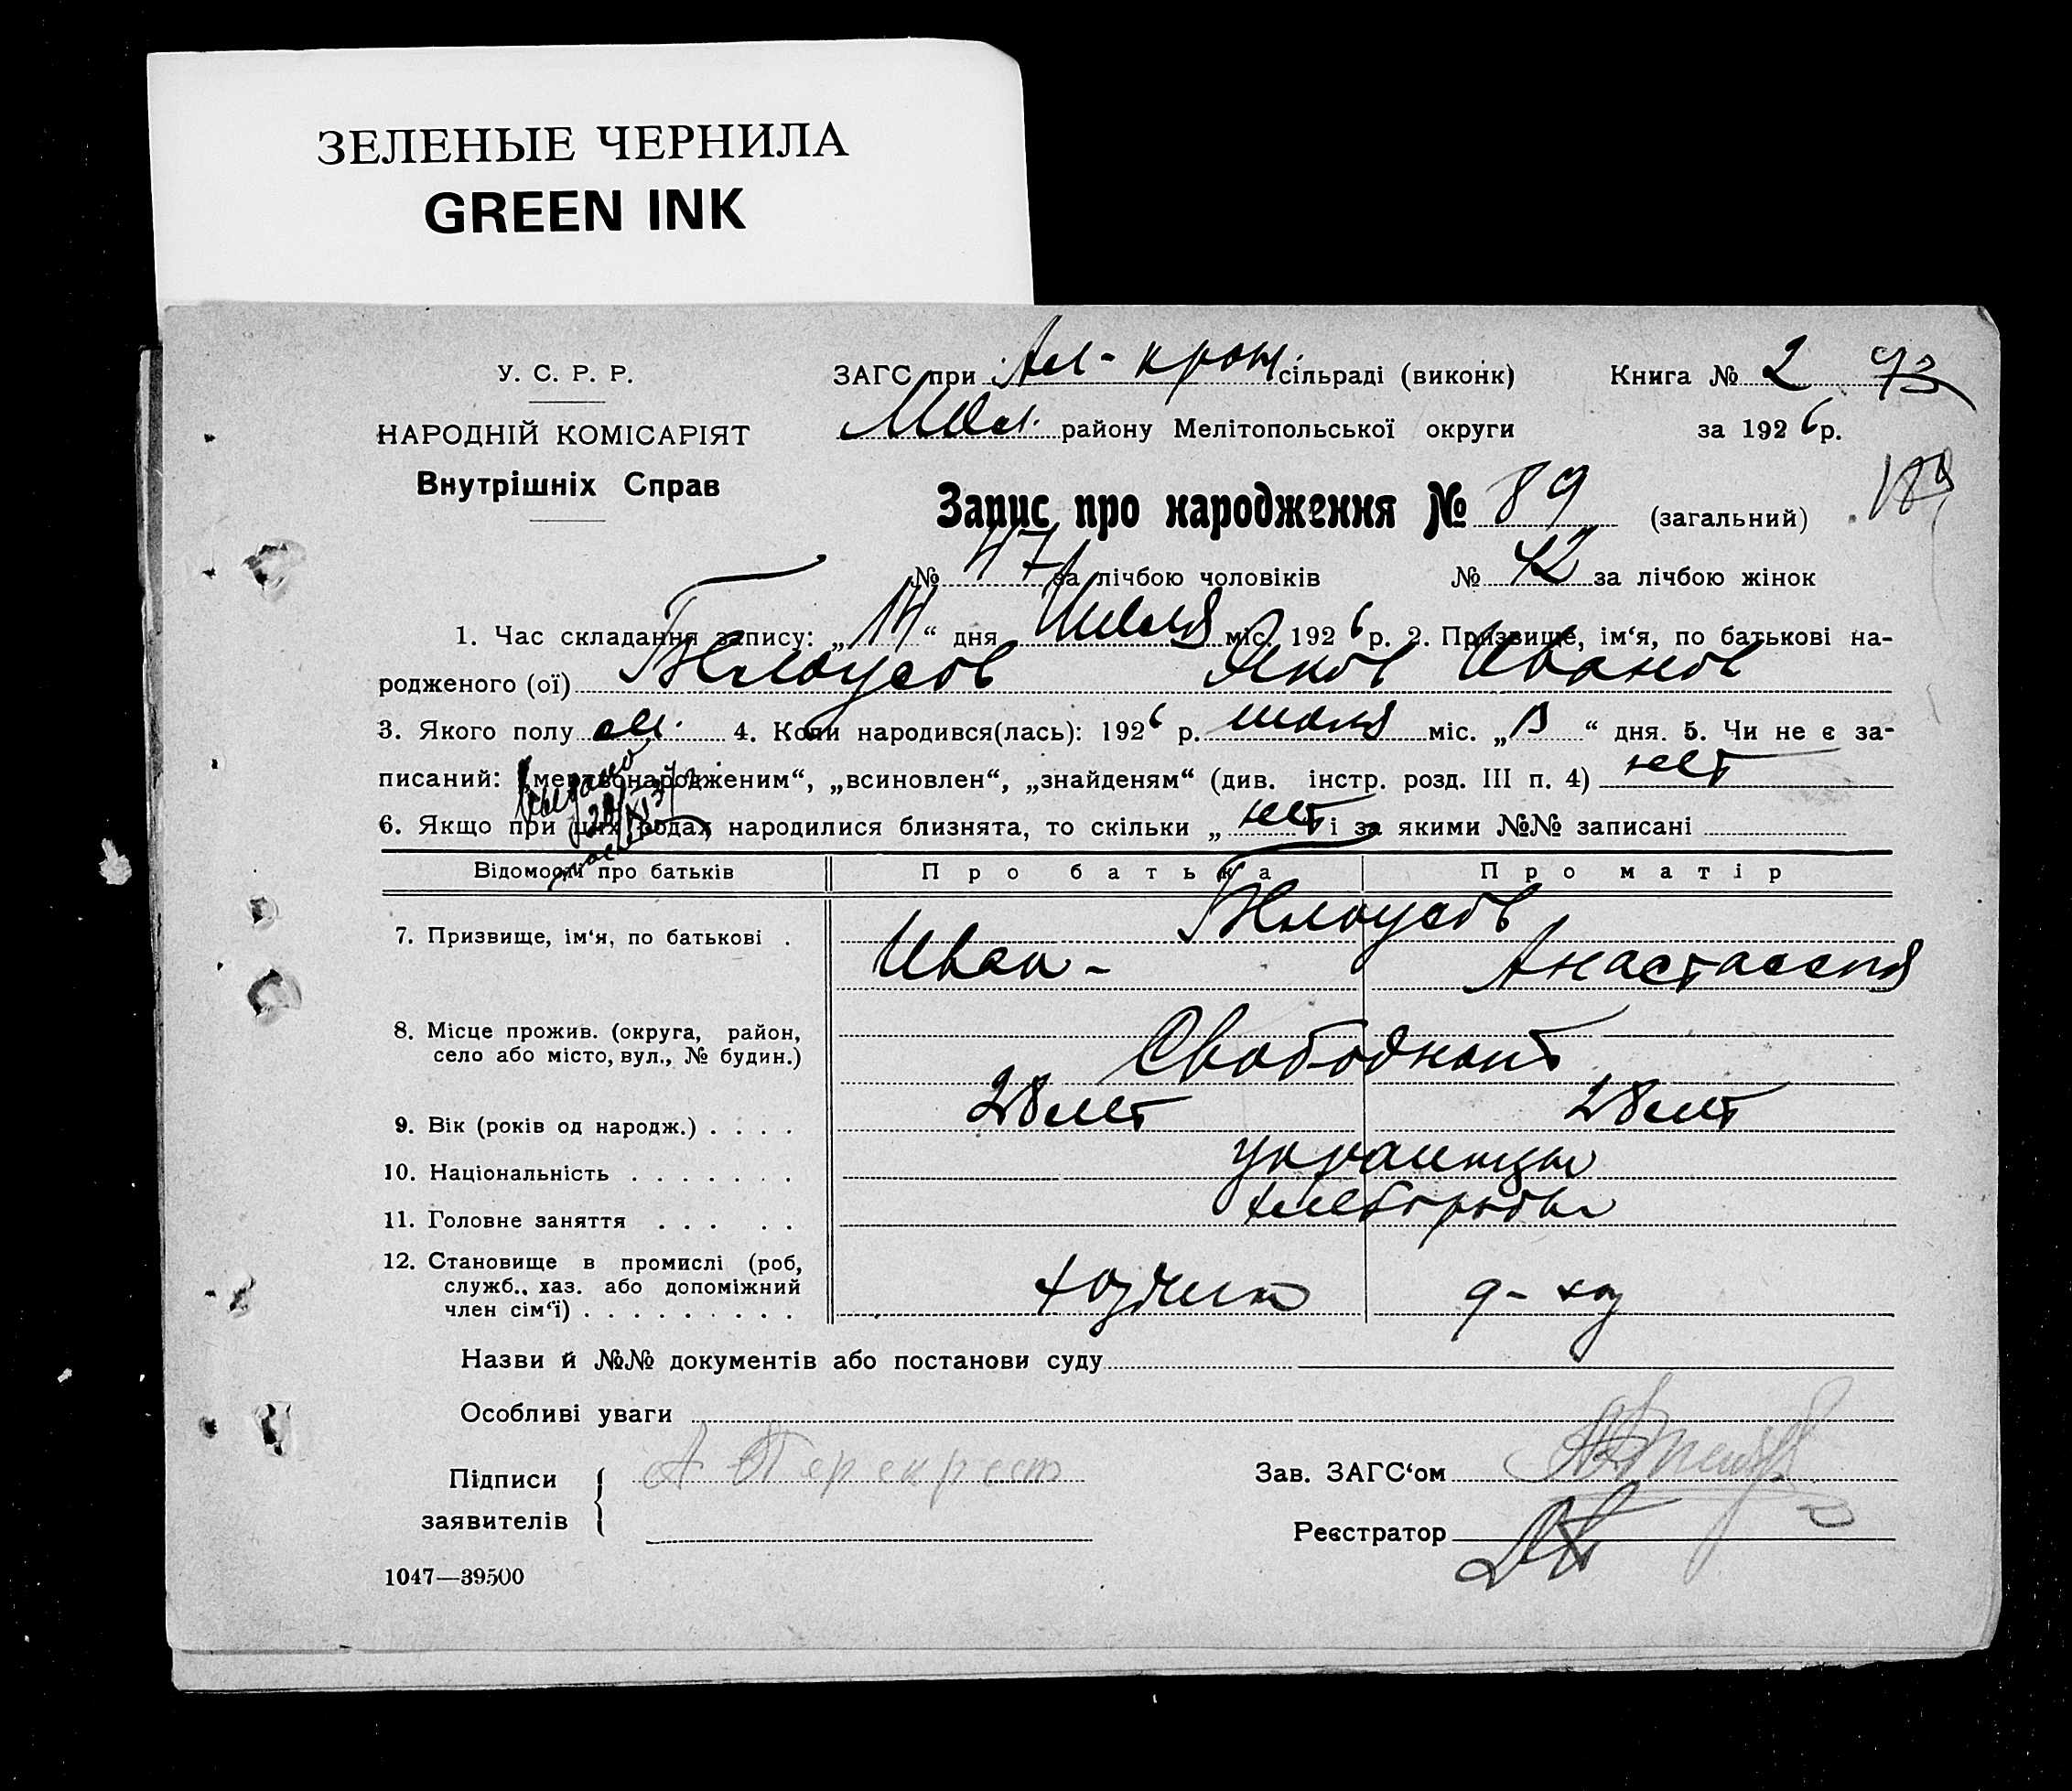 ЗЕЛЕНЫЕ ЧЕРНИЛА
GREEN INK
У. С. Р. Р.
НАРОДНІЙ КОМІСАРІЯТ
Внутрішніх Справ
ЗАГС при Ал-крон сільраді (виконк) Книга № 2 93
району Мелітопольської округи за 1926 р.
Запис про народження № 89 (загальний)
№ 47 за лічбою чоловіків № 42 за лічбою жінок
1. Час складання запису: „ “ дня міс. 1926 р. 2. Призвище, ім‘я, по батькові на-
родженого (ої) Белоусов Яков Иванов
3. Якого полу м. 4. Коли народився(лась): 1926 р. міс. „ “ дня. 5. Чи не є за-
писаний: „мертвонародженим“, „всиновлен“, „знайденям“ (див. інстр. розд. III п. 4) нет
6. Якщо при цих родах народилися близнята, то скільки „ нет і за якими №№ записані
Відомости про батьків Про батька Про матір
7. Призвище, ім‘я, по батькові . Белоусов
Иван - Анастассия
8. Місце прожив. (округа, район,
село або місто, вул., № будин.) Свободная
9. Вік (років од народж.) . . . . 28 лет 28 лет
10. Національність . . . . . . . украинцы
11. Головне заняття . . . . . хлеборобы
12. Становище в промислі (роб,
служб., хаз. або допоміжний
член сім‘ї) . . . . . . . . .
Назви й №№ документів або постанови суду
Особливі уваги
Підписи А Перекрест Зав. ЗАГС‘ом
заявителів Реєстратор
1047—39500